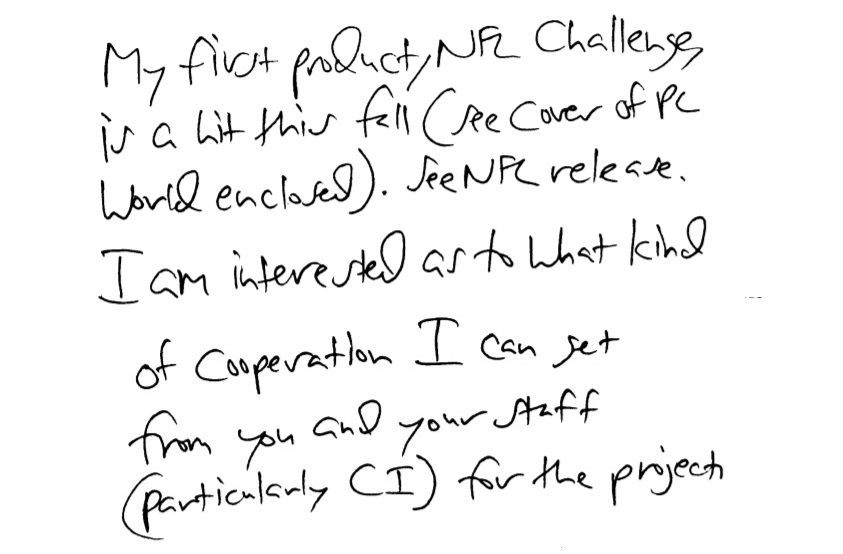 My first product, NFL Challenge,
is a hit this fall (see cover of PC
World enclosed). See NFL release.
I am interested as to what kind
of cooperation I can get
from you and your staff
(particularly CI) for the project